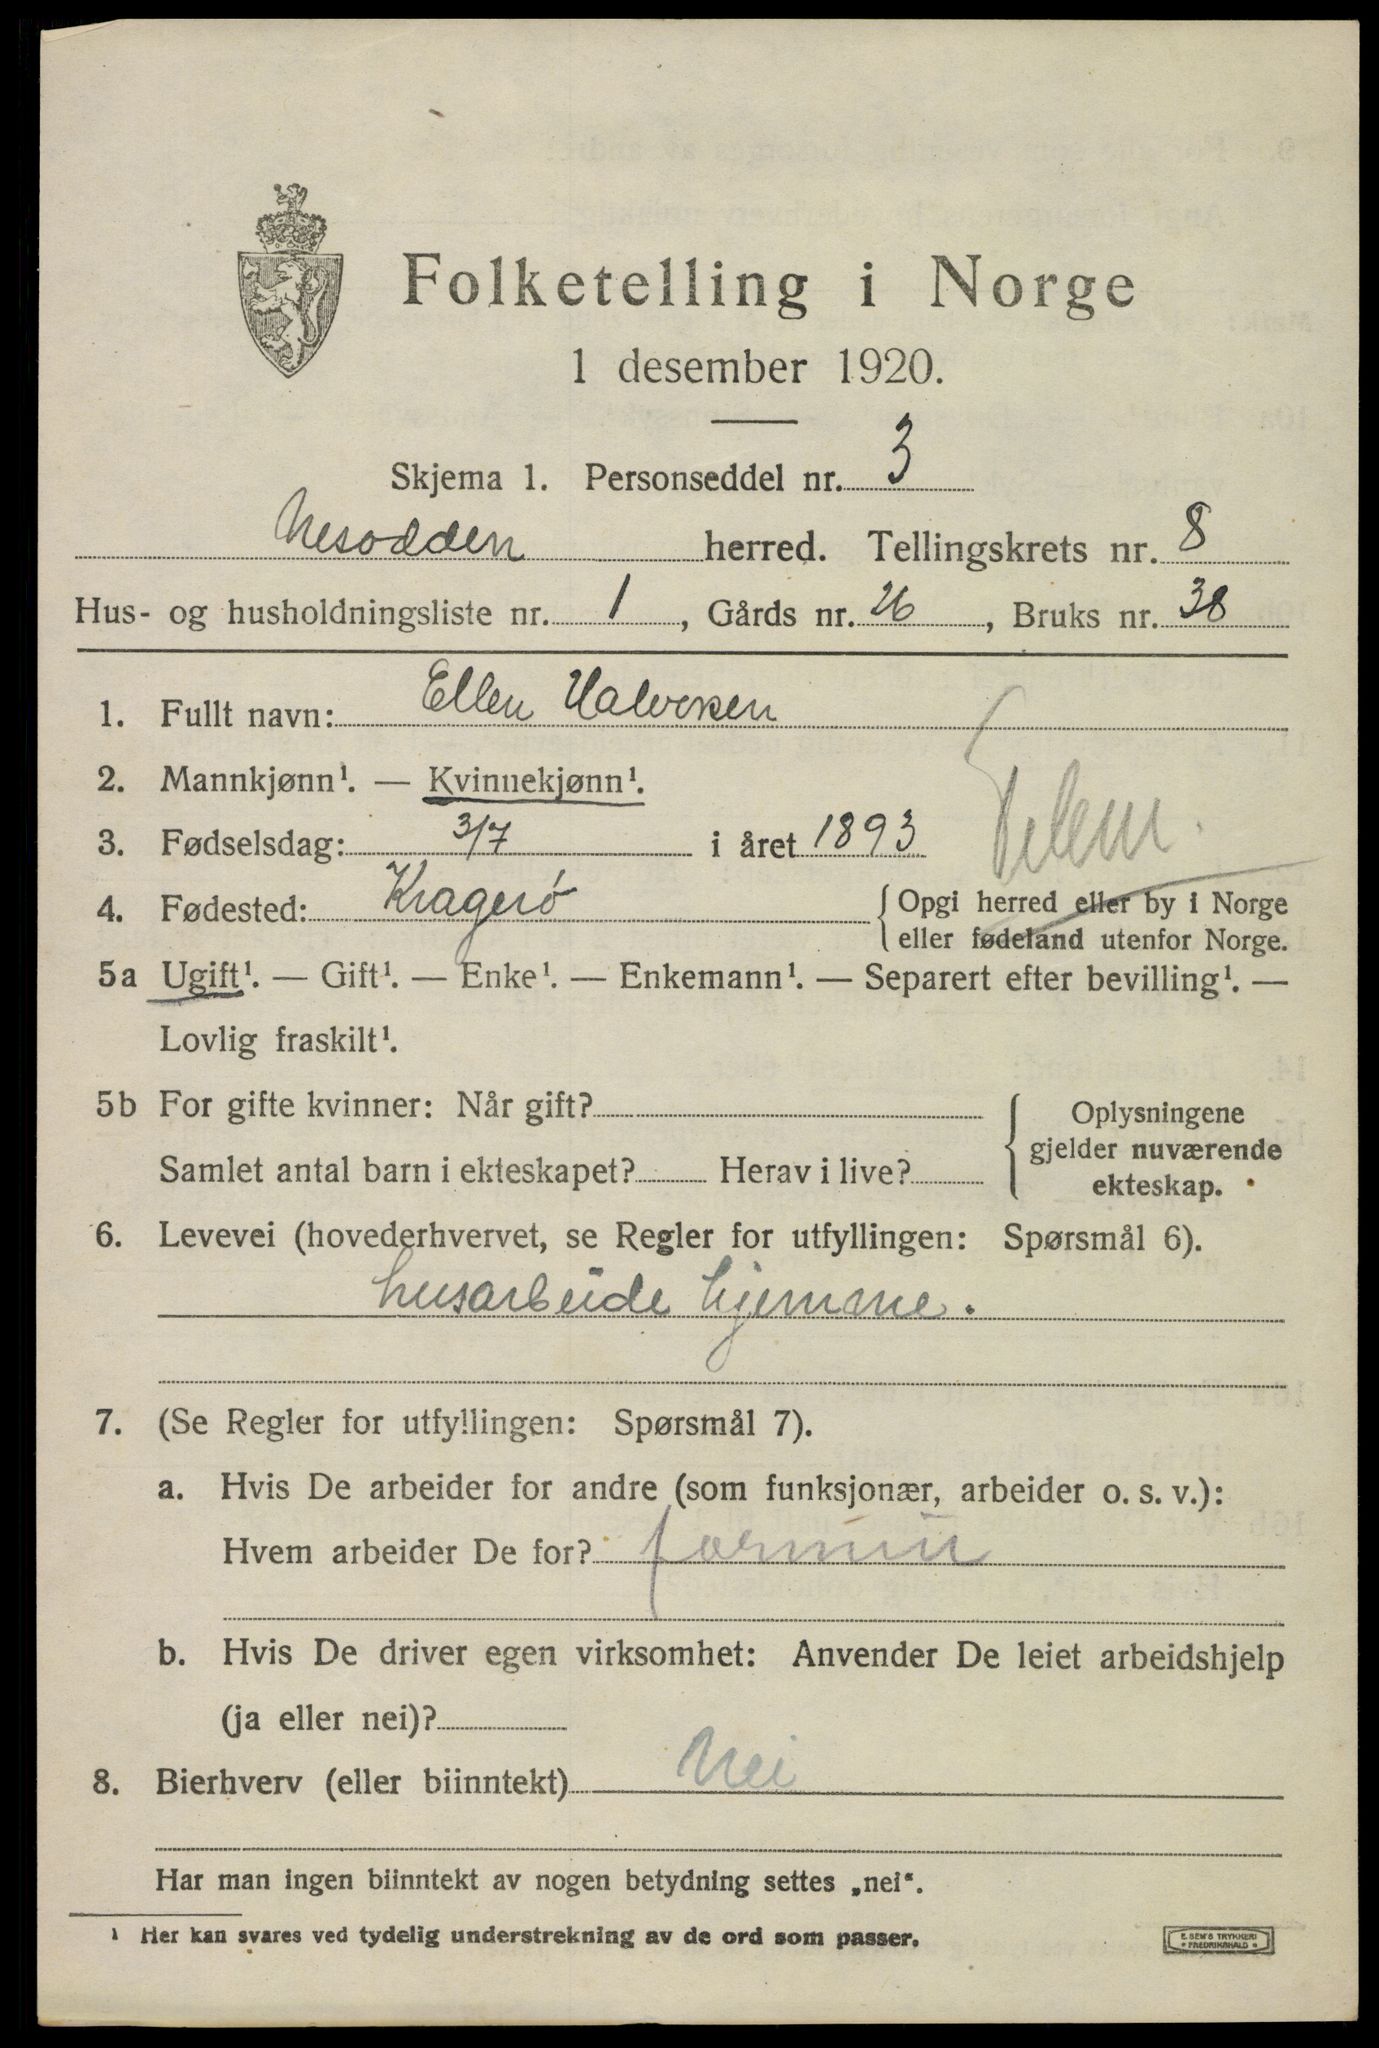 Folketelling i Norge
1 desember 1920.
Skjema 1. Personseddel nr. 3
Nesodden herred. Tellingskrets nr. 8
Hus- og husholdningsliste nr. 1, Gårds nr. 26, Bruks nr. 38
1. Fullt navn: Ellen Halvorsen
2. Mannkjønn¹. — Kvinnekjønn¹.
3. Fødselsdag: 3/7 i året 1893
Telem.
4. Fødested: Kragerö
Opgi herred eller by i Norge
eller fødeland utenfor Norge.
5a Ugift¹. — Gift¹. — Enke¹. — Enkemann¹. — Separert efter bevilling¹. —
Lovlig fraskilt¹.
5b For gifte kvinner: Når gift?
Samlet antal barn i ekteskapet? Herav i live?
Oplysningene
gjelder nuværende
ekteskap.
6. Levevei (hovederhvervet, se Regler for utfyllingen: Spørsmål 6).
husarbeide hjemme.
7. (Se Regler for utfyllingen: Spørsmål 7).
a. Hvis De arbeider for andre (som funksjonær, arbeider o. s. v.):
Hvem arbeider De for?
b. Hvis De driver egen virksomhet: Anvender De leiet arbeidshjelp
(ja eller nei)?
8. Bierhverv (eller biinntekt) Nei
Har man ingen biinntekt av nogen betydning settes „nei“.
¹ Her kan svares ved tydelig understrekning av de ord som passer.
E. SEM'S TRYKKERI
• FREDRIKSHALD •